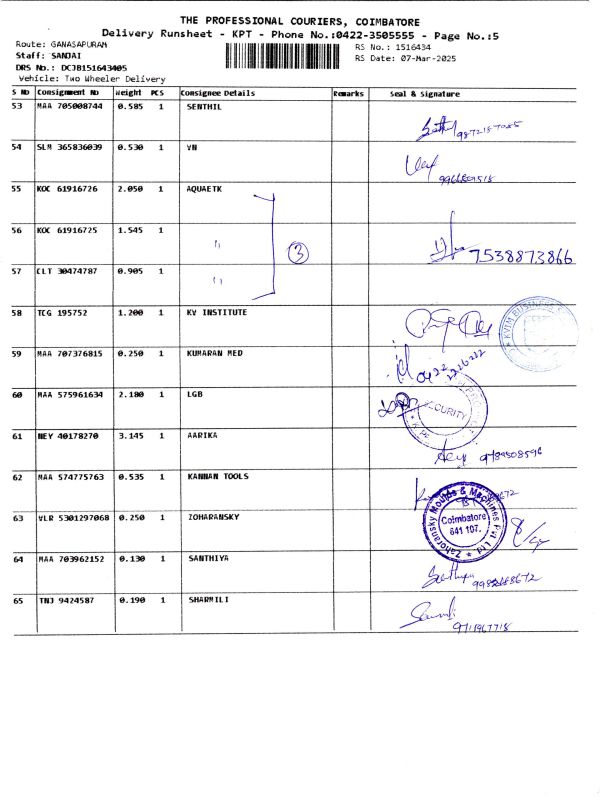 THE PROFESSIONAL COURIERS, COIMBATORE
Delivery Runsheet - KPT - Phone No.:0422-3505555 - Page No.:5
Route: GANASAPURAM
RS No.: 1516434
Staff: SANJAI
RS Date: 07-Mar-2025
DRS No.: DCJB151643405
Vehicle: Two Wheeler Delivery
S No Consignment No Weight PCS Consignee Details Remarks Seal & Signature
53 MAA 705008744 0.585 1 SENTHIL
54 SLM 365836039 0.530 1 VN
55 KOC 61916726 2.050 1 AQUAETK
56 KOC 61916725 1.545 1 " 3
7538873866
57 CLT 30474787 0.905 1 "
58 TCG 195752 1.200 1 KV INSTITUTE
KVIM BUSINESS
59 MAA 707376815 0.250 1 KUMARAN MED
0422
60 MAA 575961634 2.180 1 LGB
SECURITY
61 NEY 40178270 3.145 1 AARIKA
62 MAA 574775763 0.535 1 KANNAN TOOLS
63 VLR 5301297068 0.250 1 ZOHARANSKY
Zahoransky Moulds & Machines Pvt. Ltd.
Coimbatore
641 107.
64 MAA 703962152 0.130 1 SANTHIYA
65 TNJ 9424587 0.190 1 SHARMILI